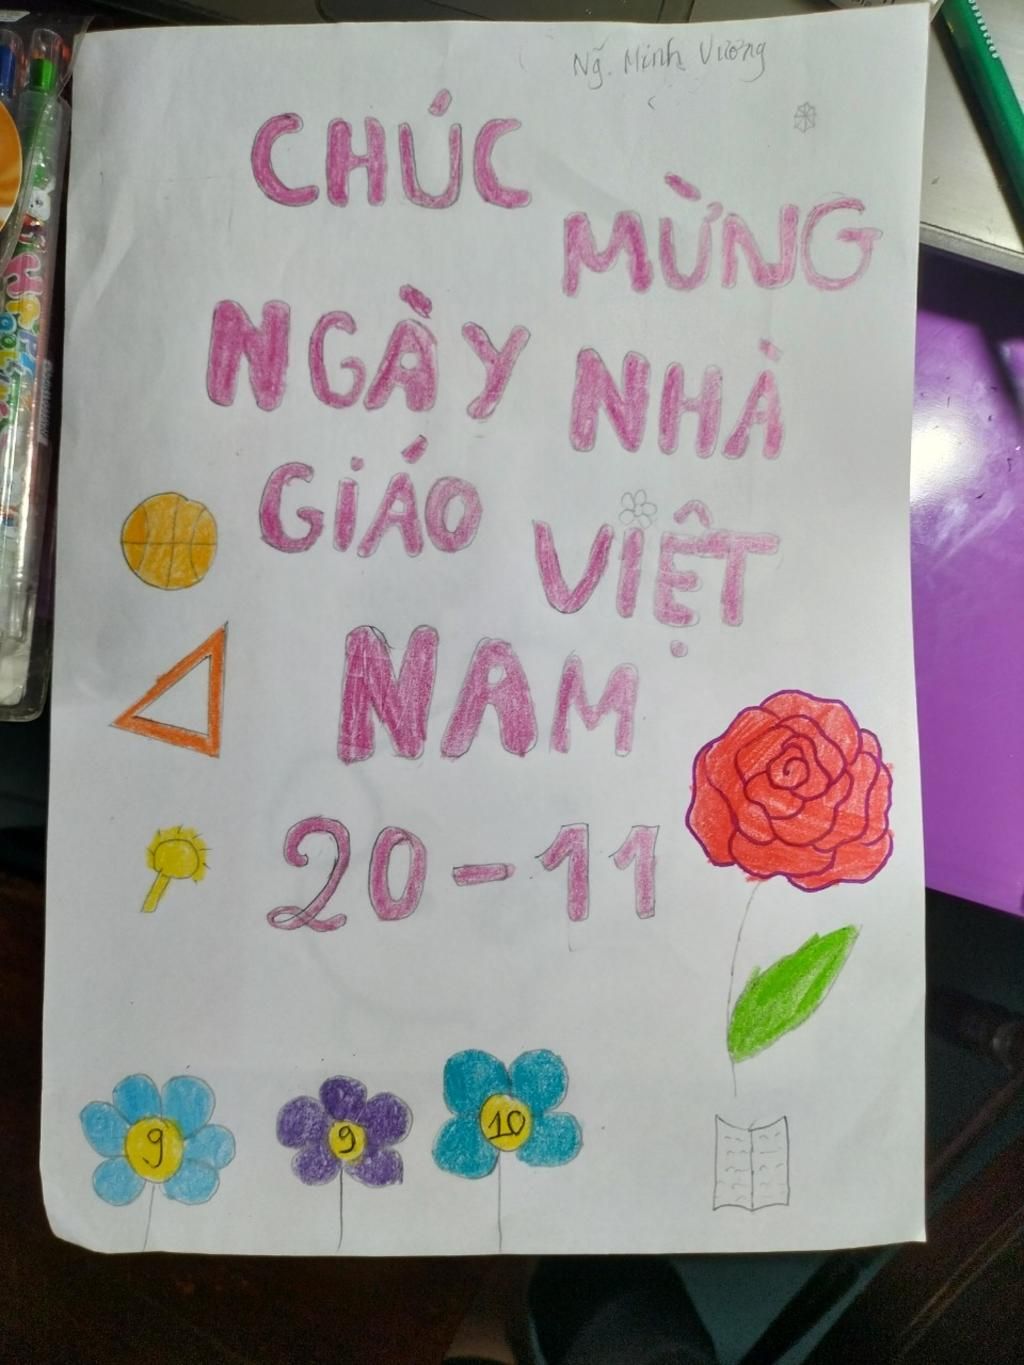 Ng̃. Minh Vương
CHÚC
MỪNG
NGÀY NHÀ
GIÁO
VIỆT
NAM
20-11
9 9 10